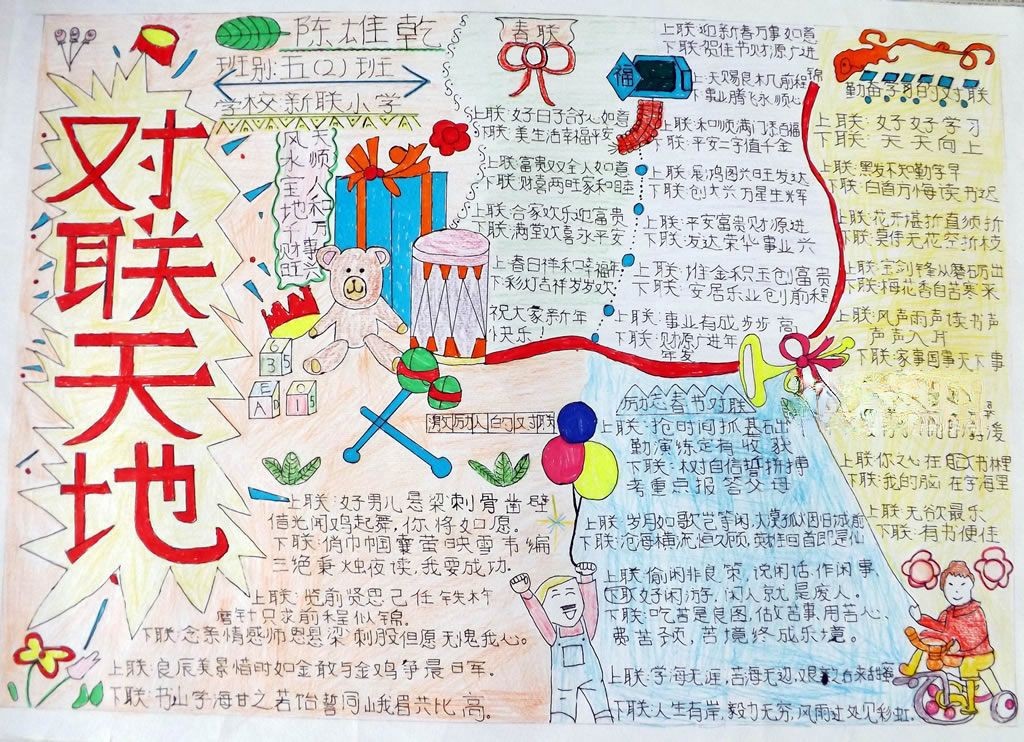 对联天地
陈雄乾
班别:五(2)班
学校新联小学
天师人和万事兴
风水宝地千财旺
春联
上联:好日子舒人如意
下联:美生活幸福平安
上联:富贵双全人如意
下联:财喜两旺家和睦
上联:合家欢乐迎富贵
下联:满堂欢喜永平安
上:春日祥和幸福年
下:彩灯吉祥岁岁欢
祝大家新年
快乐!
上联:迎新春万事如意
下联:贺佳节财源广进
福
上:天赐良机前程锦
下:事业腾飞永顺心
上联:和顺满门添百福
下联:平安二字值千金
上联:展鸿图兴旺发达
下联:创大兴万星生辉
上联:平安富贵财源进
下联:发达荣华事业兴
上联:堆金积玉创富贵
下联:安居乐业创前程
上联:事业有成步步高
下联:财源广进年
年发
勤奋学习的对联
上联:好好学习
下联:天天向上
上联:黑发不知勤学早
下联:白首方悔读书迟
上联:花开堪折直须折
下联:莫待无花空折枝
上联:宝剑锋从磨砺出
下联:梅花香自苦寒来
上联:风声雨声读书声
声声入耳
下联:家事国事天下事
上联:你之心在书林里
下联:我的脑在学海里
上联:无欲最乐
下联:有书便佳
激励人的对联
上联:好男儿悬梁刺骨凿壁
借光闻鸡起舞,你将如愿。
下联:俏巾帼囊萤映雪韦编
三绝秉烛夜读,我要成功.
上联:览前贤思己任铁杵
磨针只求前程似锦。
下联:念亲情感师恩悬梁刺股但愿无愧我心。
上联:良辰美景惜时如金敢与金鸡争晨日军。
下联:书山学海甘之若饴誓同峨眉共比高。
励志春节对联
上联:抢时间抓基础
勤演练定有收获
下联:树自信誓拼搏
考重点报答父母
上联:岁月如歌岂等闲,
下联:沧海横流恒久顾,英雄回首即是仙
上联:偷闲非良策,说闲话,作闲事
下取好闲游,闲人就是废人。
下联:吃苦是良图,估苦事用苦心、
费苦予,苦境终成乐境。
上联:学海无涯,苦海无边,艰
下联:人生有岸,毅力无穷,风雨过处见彩虹.